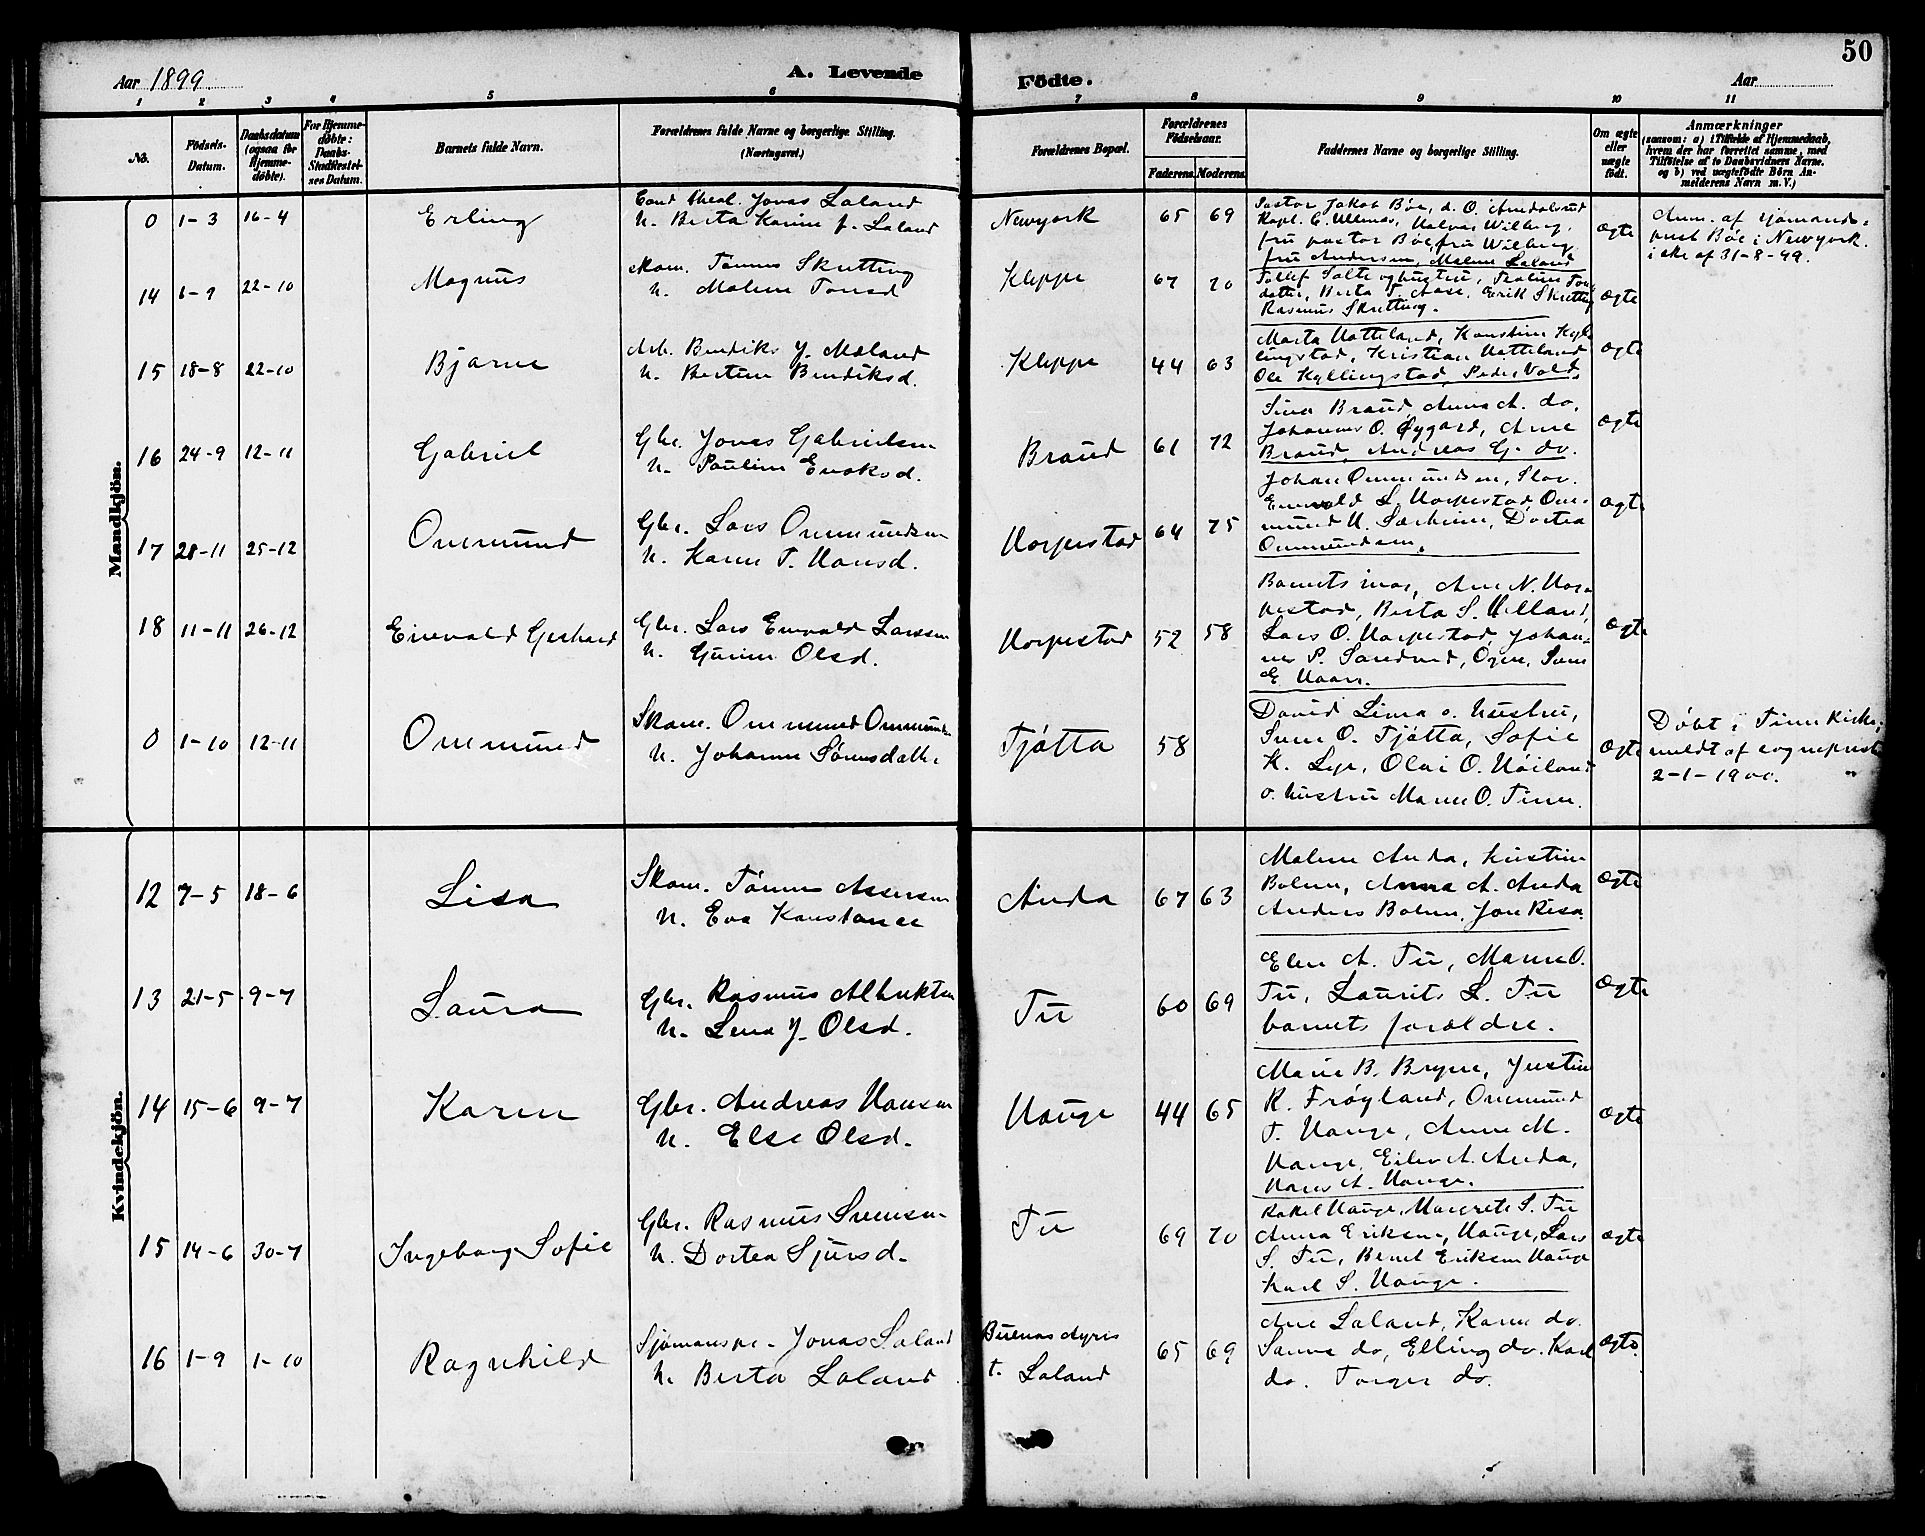 50
Aar 1899
A. Levende
Födte.
Aar
1 2 3 4 5 6 7 8 9 10 11
No.
Födsels-
Datum.
Daabsdatum
(ogsaa for
Hjemme-
döbte).
For Hjemme-
döbte:
Daabs-
Stadfæstel-
ses Datum.
Barnets fulde Navn.
Forældrenes fulde Navne og borgerlige Stilling.
(Næringsvei.)
Forældrenes Bopæl.
Forældrenes
Födselsaar.
Faderens. Moderens.
Faddernes Navne og borgerlige Stilling.
Om ægte
eller
uægte
födt.
Anmærkninger
(saasom: a) i Tilfælde af Hjemmedaab,
hvem der har forrettet samme, med
Tilföielse af to Daabsvidners Navne,
og b) ved uægtefödte Börn An-
melderens Navn m. V.)
Mandkjön.
0 1-3 16-4 Erling
Cand. theol. Jonas Laland
h. Berta Karine f. Laland
Newyork 65 69
Pastor Jakob Bøe, d. O.
Kapl. C. Ullenæs, Halvor Wilberg,
fru pastor Bøe, fru Wilberg
fru Andersen, Malene Laland
ægte
Anm. af sjømands-
prest Bøe i Newyork.
31-8-99.
14 1-9 22-10 Magnus
Skom. Tønnes Skretting
h. Malene Tonsd
Kleppe 67 70
Tollef Salte og hustru,
Berta T. Aase, Erik Skretting
Rasmus Skretting.
ægte
15 18-8 22-10 Bjarne
Arb. Bendiks J. Mæland
h. Bertine Bendiksd.
Kleppe 44 63
Marta Hatteland, Konstine Kyl-
lingstad, Kristian Hatteland
Ole Kyllingstad, Peder Vold.
ægte
16 24-9 12-11 Gabriel
Gbr. Jonas Gabrielsen
h. Pauline Enoksd.
Braud 61 72
Sina Braud, Anna A. do.
Johannes O. Øygard, Ane
Braud, Andreas G. do.
ægte
17 28-11 25-12 Ommund
Gbr. Lars Ommundsen
h. Karen T. Hansd.
Horpestad 64 75
Johan Ommundsen,
Enevald L. Horpestad, Om-
mund H. Særheim, Dortea
Ommundsen.
ægte
18 11-11 26-12 Einevald Gerhard
Gbr. Lars Enevald Larssen
h. Gurine Olsd.
Horpestad 52 58
Barnets mor, Ane N. Hor-
pestad, Berta S. Helland,
Lars O. Horpestad, Johan-
nes P. Sandved, Ogne, Sven
E. Haar.
ægte
0 1-10 12-11 Ommund
Skom. Ommund Ommunds.
h. Johanne Sørensdatter
Tjøtta 58
David Lima o. hustru,
Sven O. Tjøtta, Sofie
K. Lye, Olai O. Høiland
o. hustru Maren O. Time.
ægte
Døbt i Time Kirke,
meldt af sogneprest
2-1-1900.
Kvindekjön.
12 7-5 18-6 Lisa
Skom. Tønnes Assersen
h. Eva Konstanse
Anda 67 63
Malene Anda, Kristine
Bolen, Anna A. Anda
Anders Bolen, Jon Risa.
ægte
13 21-5 9-7 Laura
Gbr. Rasmus Albrektsen
h. Lena J. Olsd.
Tu 60 69
Elen A. Tu, Maren O.
Tu, Laurits L. Tu
barnets forældre.
ægte
14 15-6 9-7 Karen
Gbr. Andreas Hansen
h. Else Olsd.
Hauge 44 65
Marie B. Bryne, Justine
R. Frøyland, Ommund
T. Hauge, Anne M.
Hauge, Eiler A. Anda,
Hans A. Hauge.
ægte
15 14-6 30-7 Ingeborg Sofie
Gbr. Rasmus Svensen
h. Dortea Sjursd.
Tu 69 70
Rakel Hauge, Margrete S. Tu
Anna Eriksen, Hauge, Lars
S. Tu, Berul Eriksen Hauge
Karl S. Hauge.
ægte
16 1-9 1-10 Ragnhild
Sjømanspr. Jonas Laland
h. Berta Laland
Buenos Ayris
t. Laland
65 69
Ane Laland, Karen do.
Sanna do, Elling do. Karl
do. Torger do.
ægte.